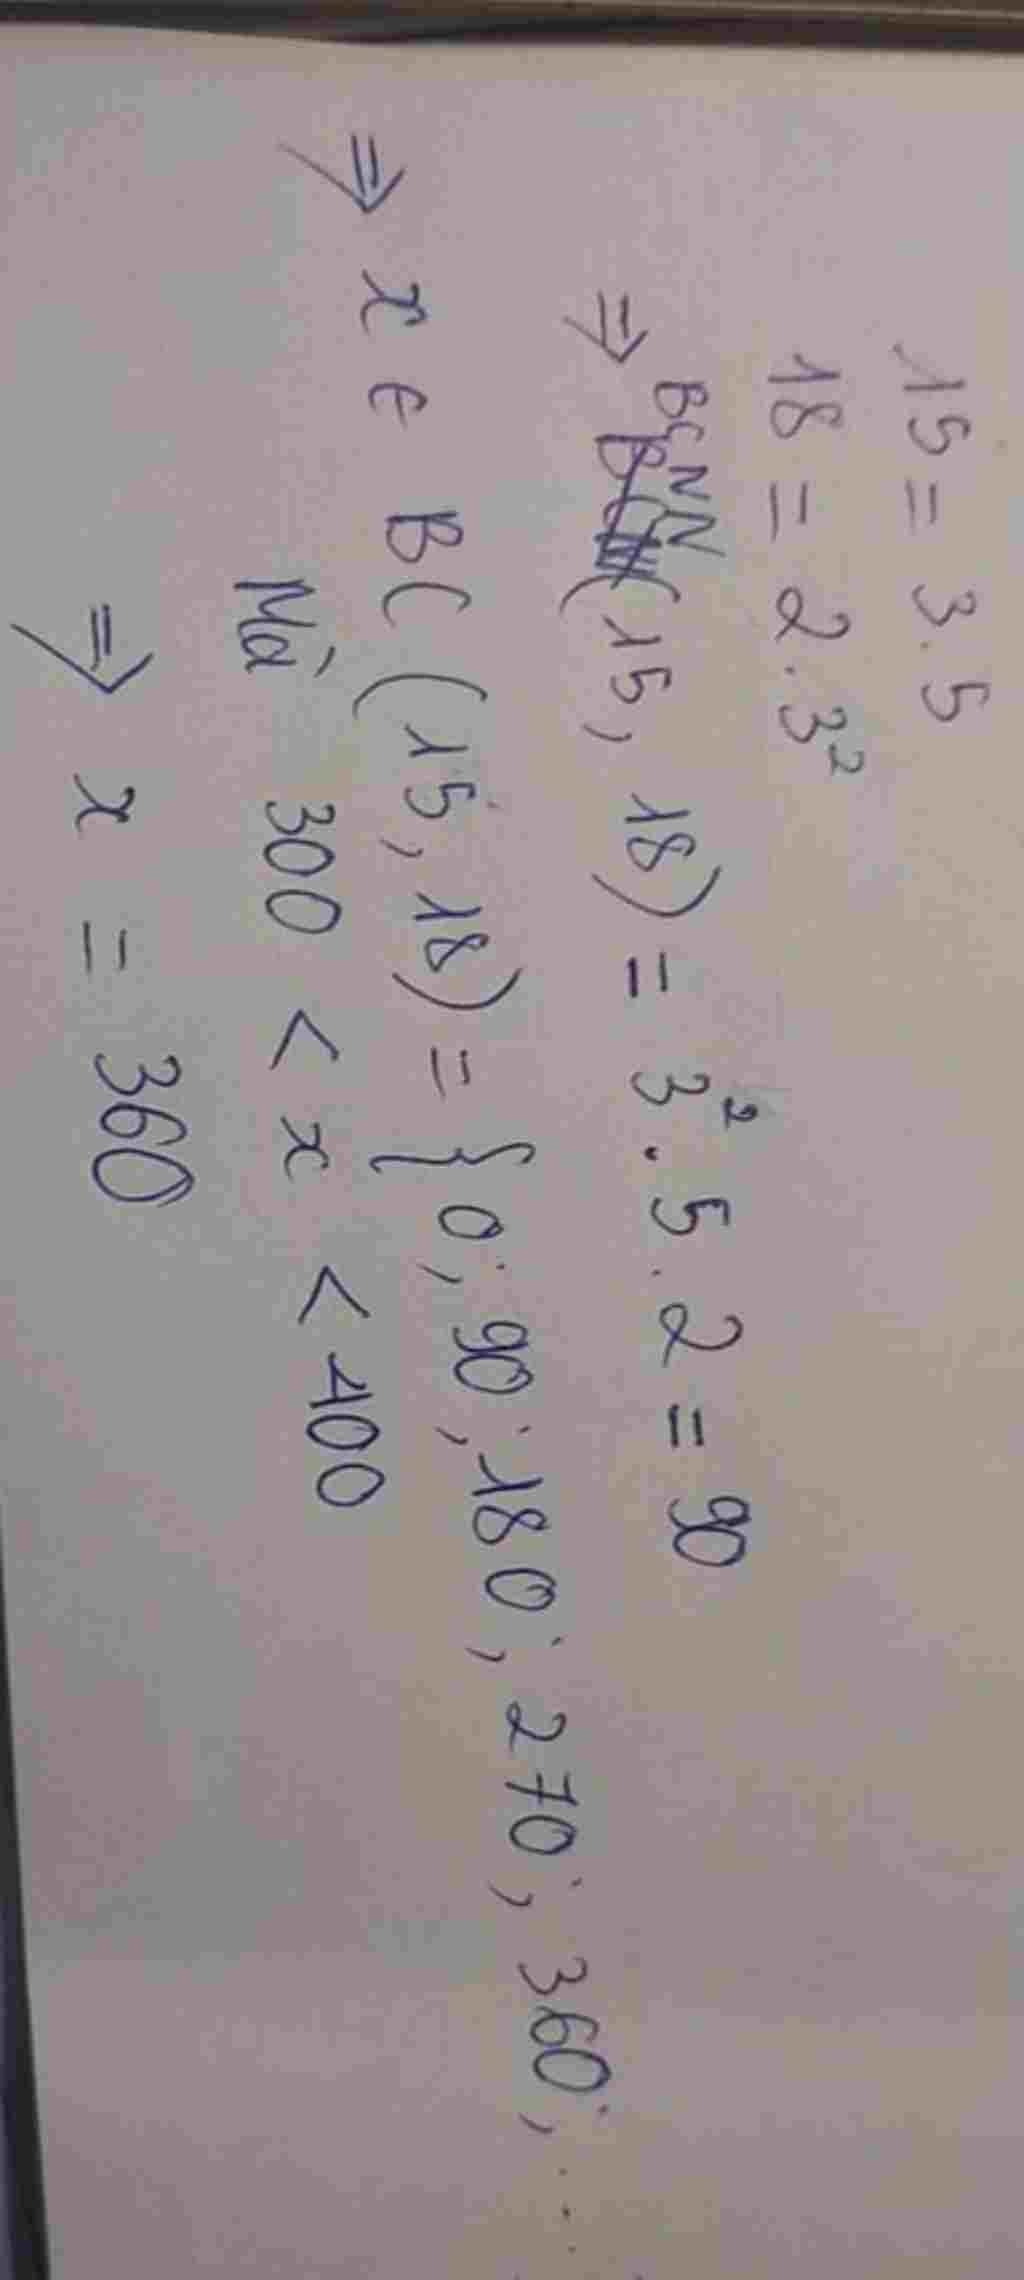 15 = 3.5
18 = 2.3²
⇒ BCNN(15, 18) = 3².5.2 = 90
⇒ x ∈ BC(15, 18) = {0; 90; 180; 270; 360; ...
Mà 300 < x < 400
⇒ x = 360